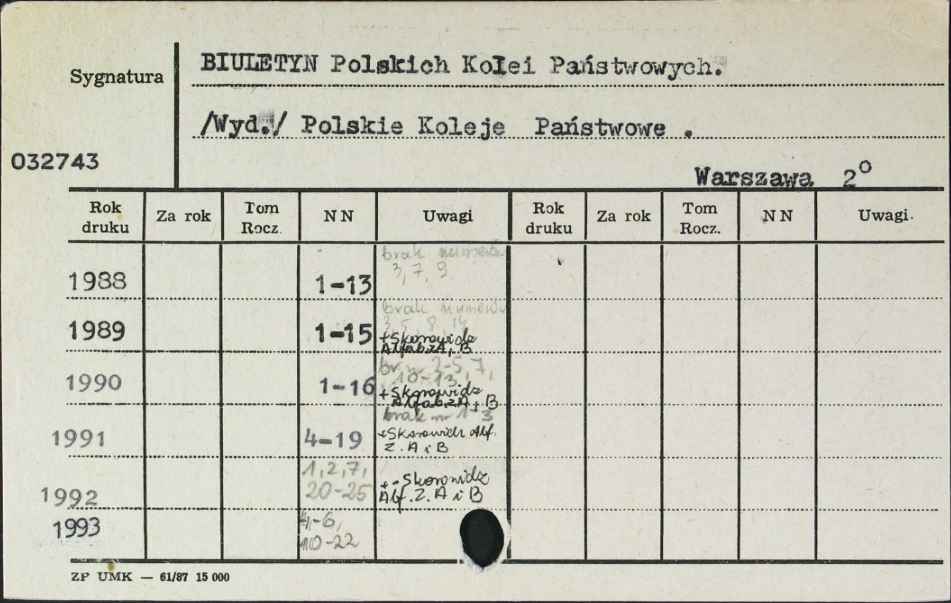 BIULETYN Polskich Kolei Państwowych.
Sygnatura
/Wyd./ Polskie Koleje Państwowe .
032743
Warszawa 2°
Rok druku Za rok Tom Rocz. N N Uwagi Rok druku Za rok Tom Rocz. N N Uwagi.
brak numerów
1988 1-13 3, 7, 9
brak numerów
3, 5, 8, 14
1989 1-15 +Skorowidz
Alfab z A i B
br. nr 2-5, 7,
10-13,
1990 1-16 +Skorowidz
Alfab z A i B
brak nr 1-3
1991 4-19 +Skorowidz Alf.
Z. A i B
1, 2, 7,
1992 20-25 +-Skorowidz
Alf. Z. A i B
1993 4-6,
10-22
ZP UMK — 61/87 15 000